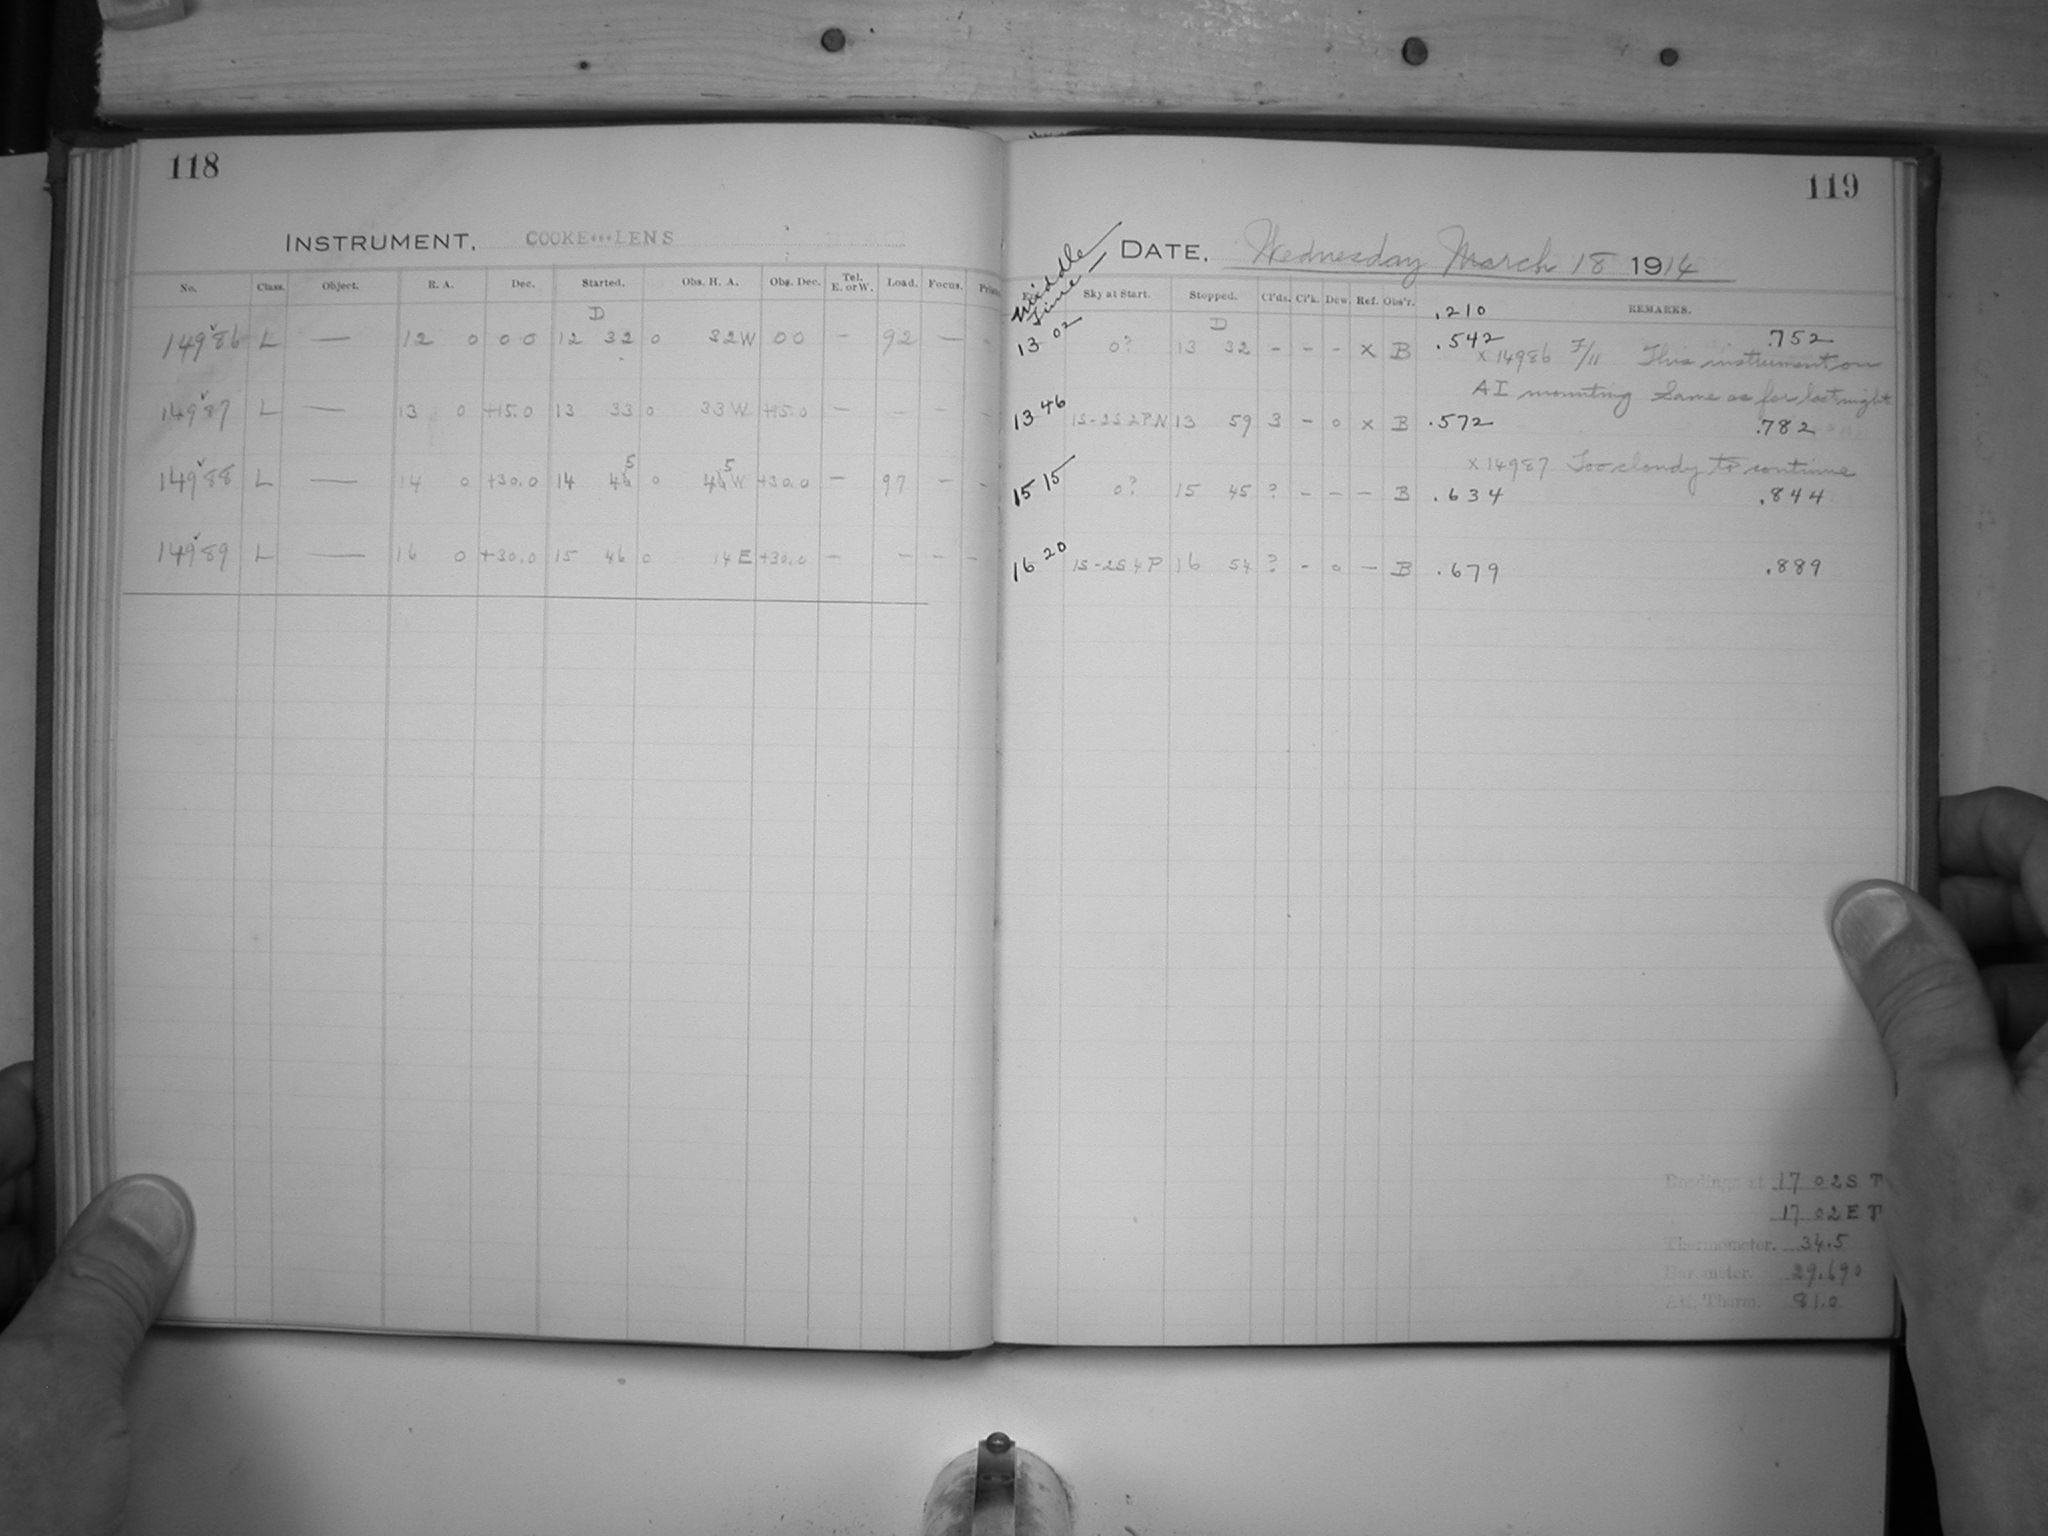 118
INSTRUMENT. COOKE LENS
No. Class. Object. R. A. Dec. Started. Obs. H. A. Obs. Dec. Tel. E. or W. Load. Focus.
D
14986 L — 12 0 00 12 32 0 32W 00 — 92 — -
14987 L — 13 0 +15.0 13 33 0 33W +15.0 — - -
5 5
14988 L — 14 0 +30.0 14 0 W +30.0 — 97 - -
14989 L — 16 0 +30.0 15 46 0 14E +30.0 — — - -
119
Middle Time
DATE. Wednesday March 18 1914
Sky at Start. Stopped. Cl'ds. Cl'k. Dew. Ref. Obs'r. REMARKS.
.210
D
13 02 0? 13 32 - - - x B .542 .752
x 14986 F/11 This instrument on
AI mounting Same as for last night
13 46 1S-2S2PN 13 59 3 - 0 x B .572 .782
x 14987 Too cloudy to continue
15 15 0? 15 45 ? - - - B .634 .844
16 20 1S-2S4P 16 54 ? - 0 - B .679 .889
Readings at 17 02 S T
17 02 E T
Thermometer. 34.5
Barometer. 29.690
Att. Therm. 81.0